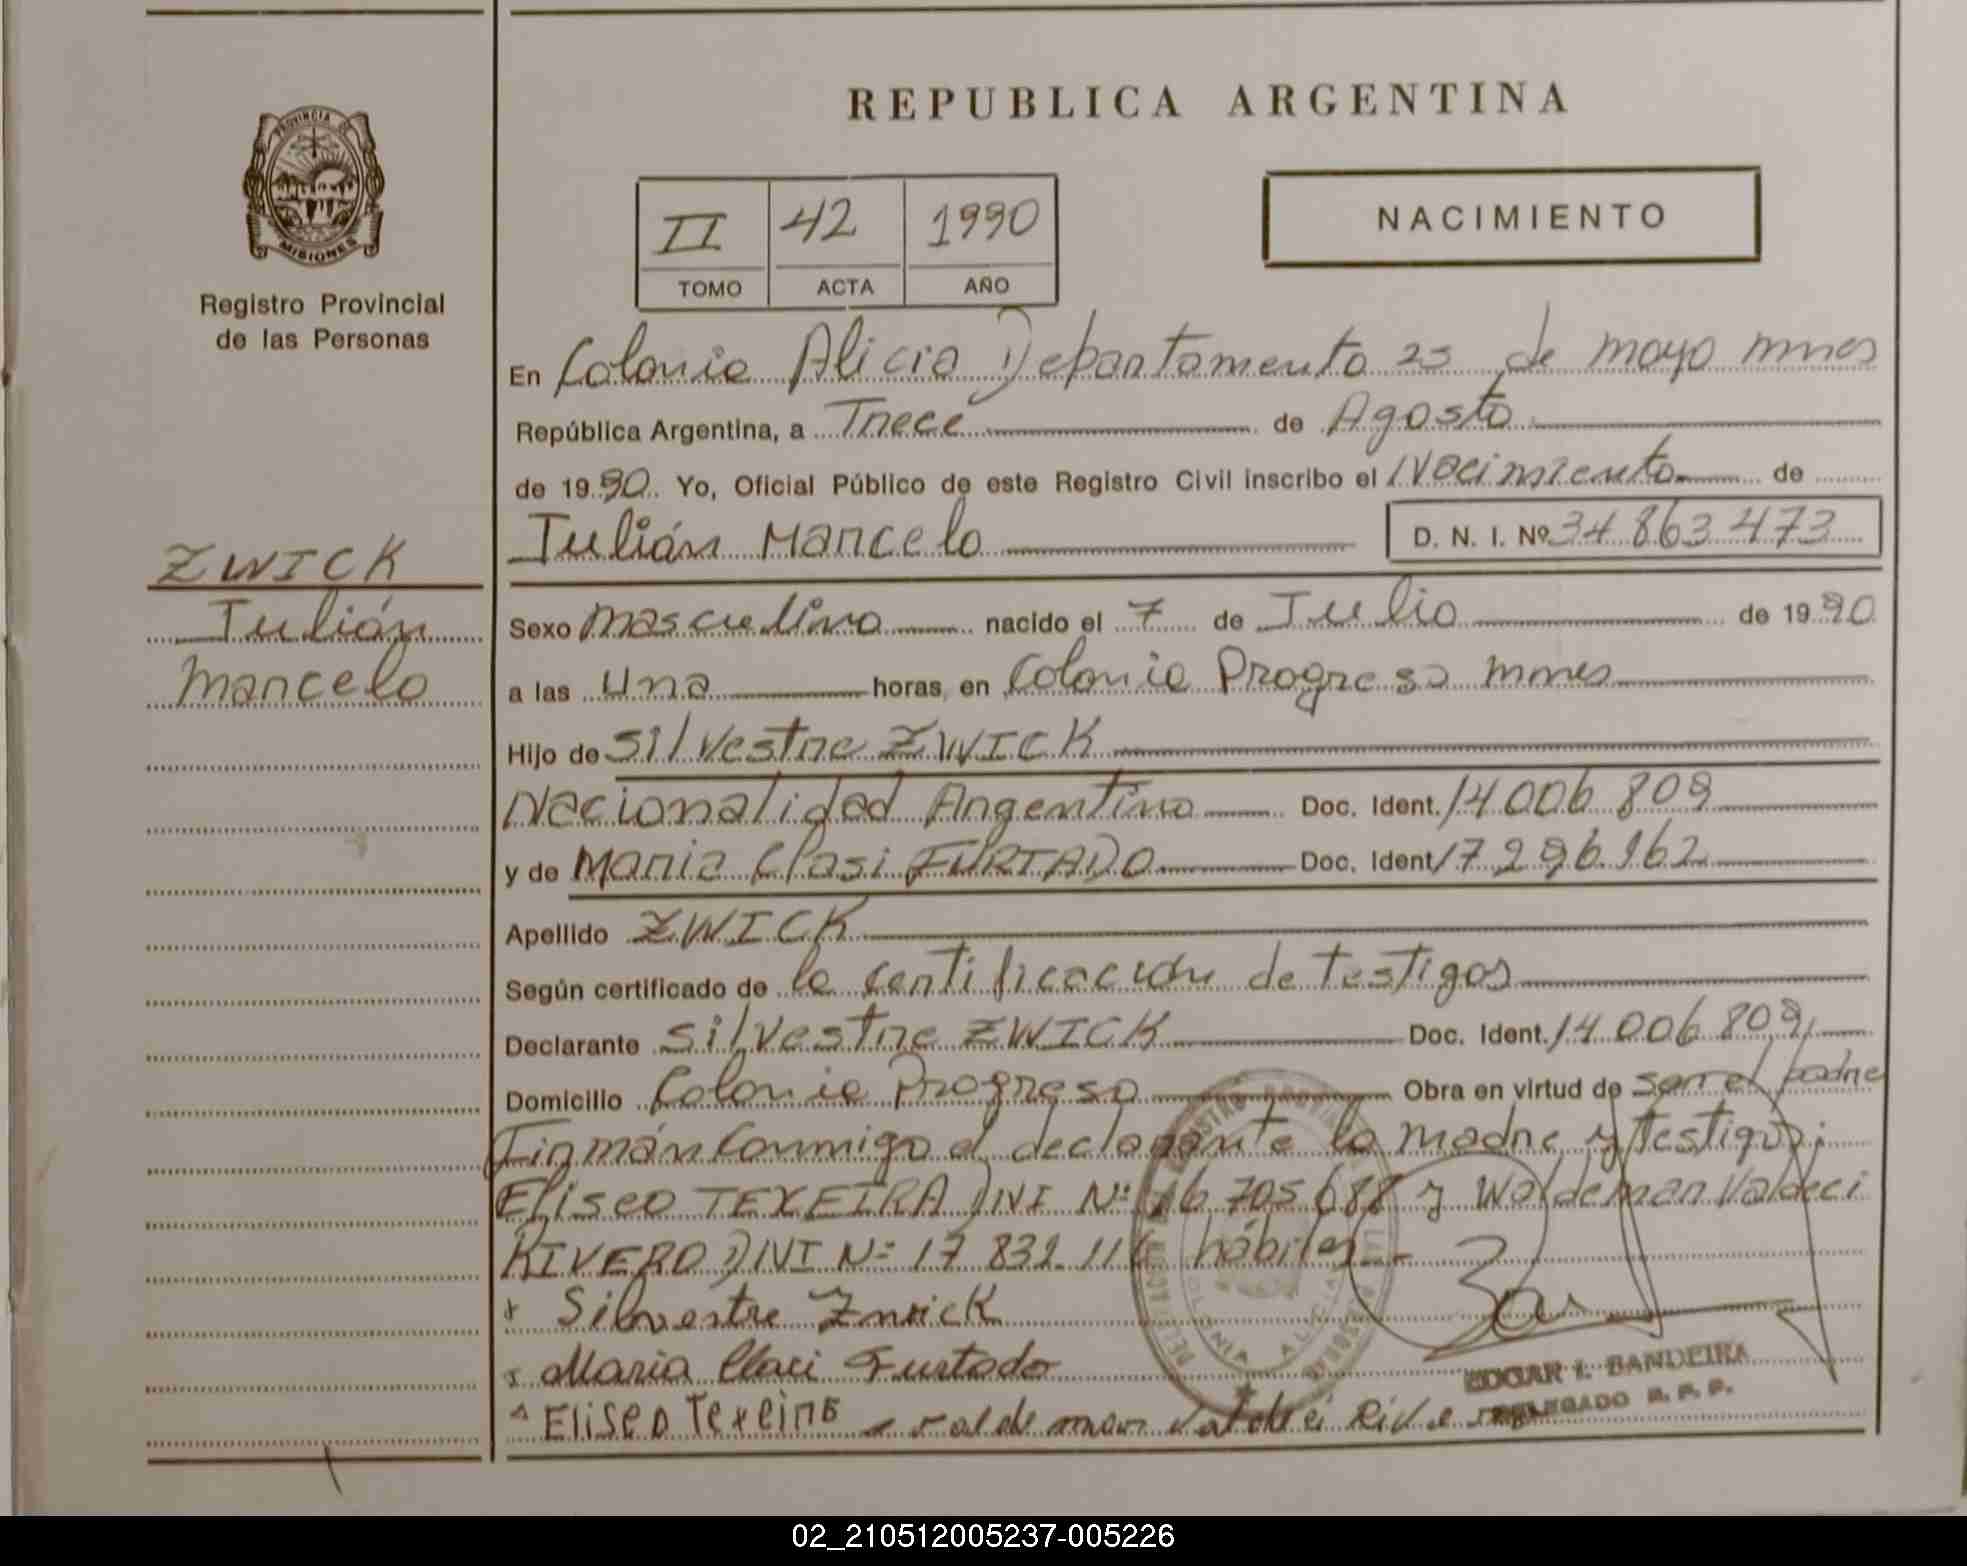 REPUBLICA ARGENTINA
PROVINCIA DE
MISIONES
Registro Provincial
de las Personas
II 42 1990
TOMO ACTA AÑO
NACIMIENTO
En Colonia Alicia Departamento 25 de mayo mnes
República Argentina, a Trece de Agosto
de 1990 Yo, Oficial Público de este Registro Civil inscribo el Nacimiento de
Julián Marcelo D. N. I. Nº 34 863 473
ZWICK
Julián
Marcelo
Sexo masculino nacido el 7 de Julio de 1990
a las una horas, en Colonia Progreso mnes
Hijo de Silvestre ZWICK
Nacionalidad Argentina Doc. Ident. 14 006 809
y de Maria Clasi FURTADO Doc. Ident 17 296 162
Apellido ZWICK
Según certificado de la certificación de testigos
Declarante Silvestre ZWICK Doc. Ident. 14 006 809
Domicilio Colonia Progreso Obra en virtud de ser el padre
Firmán conmigo el declarante la madre y testigos:
Eliseo TEXEIRA DNI Nº 16 705 688 y Waldemar Valdeci
RIVERO DNI Nº 17 832 116 hábiles
x Silvestre Zwick
x Maria Claci Furtado
Eliseo Texeira valdemar valdeci Rive
COLONIA ALICIA
EDGAR I. BANDEIRA
DELEGADO R. P. P.
02_210512005237-005226